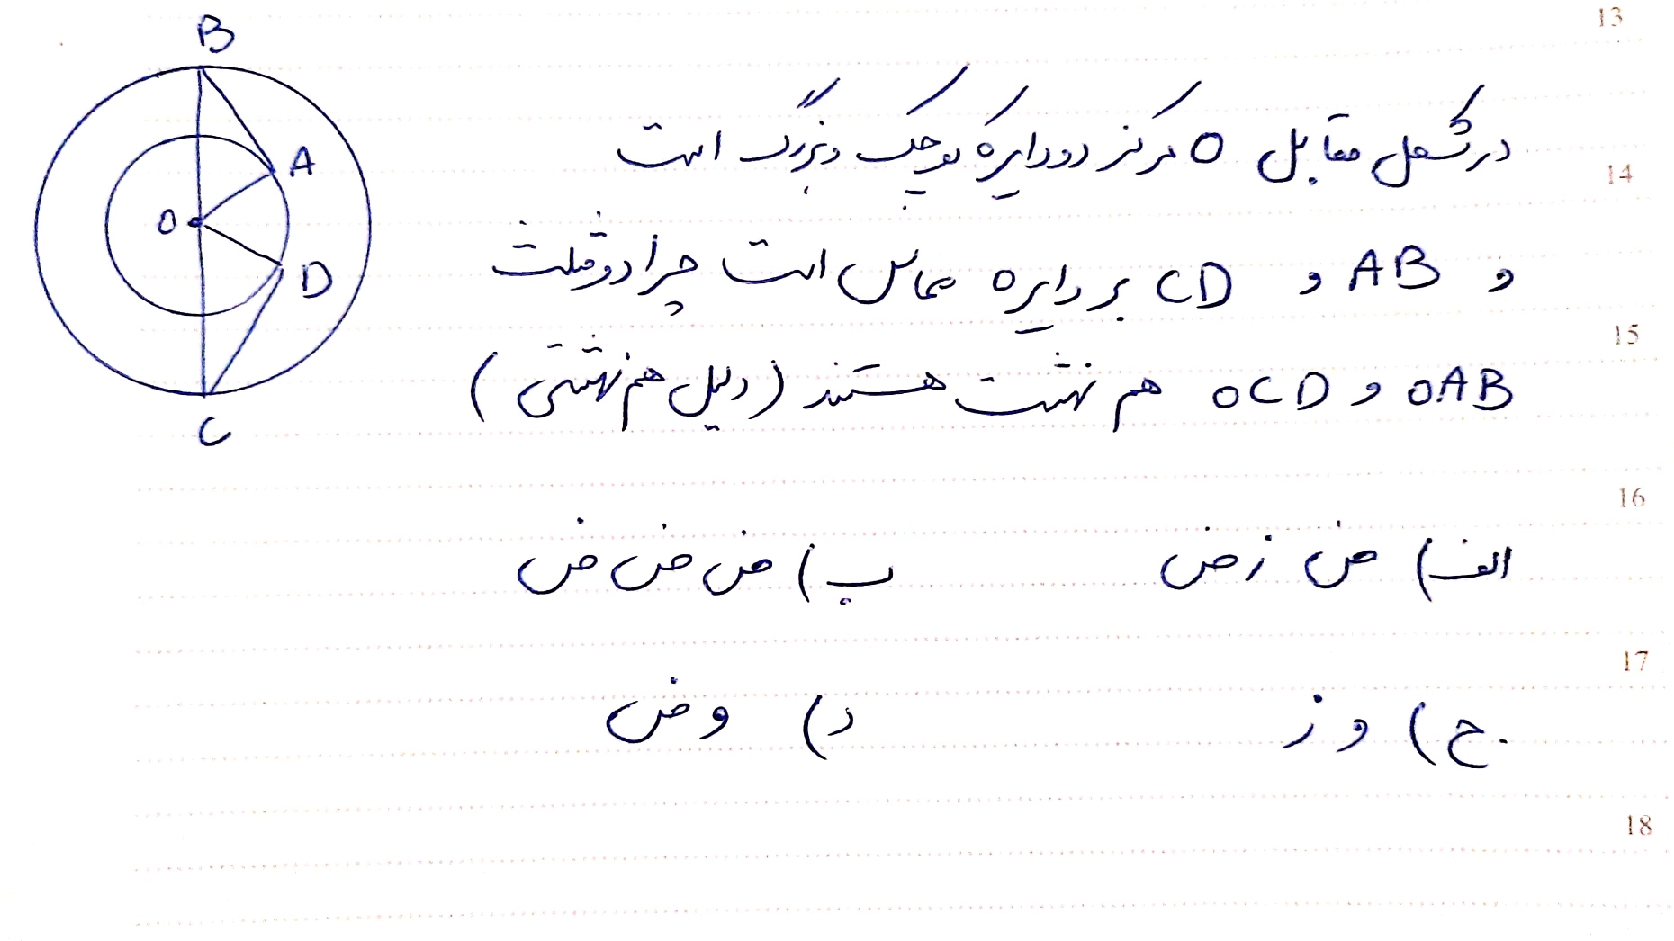 B
A
O
D
C
در شکل مقابل O مرکز دو دایره کوچک و بزرگ است
و AB و CD بر دایره مماس است چرا دو مثلث
OAB و OCD هم نهشت هستند (دلیل هم نهشتی)
الف) ض ز ض ب) ض ض ض
ج) و ز د) و ض
13
14
15
16
17
18